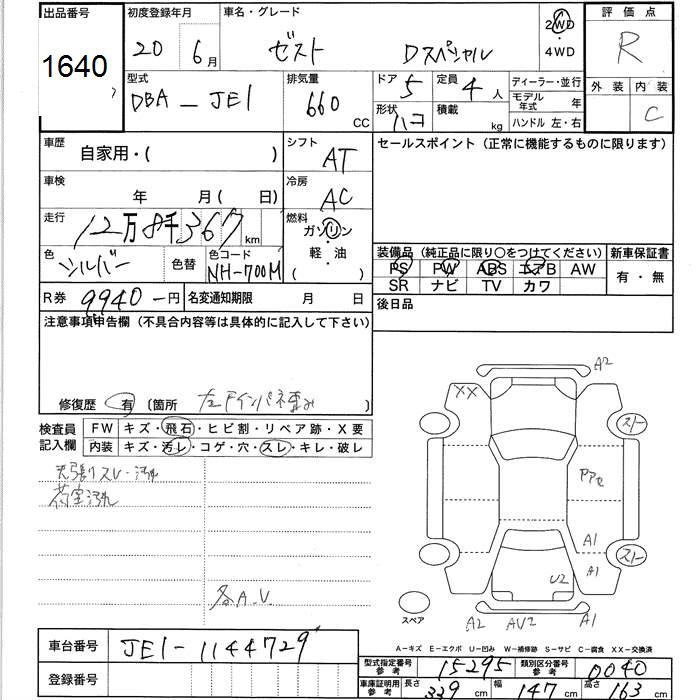 出品番号 初度登録年月 車名・グレード 評価点
1640 20 年 6 月 ゼスト Dスペシャル 2WD ・ 4WD R
型式 排気量 ドア 定員 ディーラー・並行 外装 内装
DBA - JE1 660 CC 5 4 人 モデル年式 年 C
形状 ハコ 積載 kg ハンドル 左・右
車歴 自家用・( ) シフト AT セールスポイント (正常に機能するものに限ります)
車検 年 月 ( 日 ) 冷房 AC
走行 12万8千367 km 燃料 ガソリン ・ 軽・油 ( )
色 シルバー 色替 色コード NH-700M
装備品 (純正品に限り○をつけてください) 新車保証書
PS PW ABS エアB AW 有・無
SR ナビ TV カワ
R券 9940-円 名変通知期限 月 日 後日品
注意事項申告欄 (不具合内容等は具体的に記入して下さい)
修復歴 有 〔箇所 左Fインパネ歪み 〕
検査員記入欄 FW キズ・飛石・ヒビ割・リペア跡・X要
内装 キズ・汚レ・コゲ・穴・スレ・キレ・破レ
天張りスレ・汚れ
荷室汚れ
各A.V.
A2
XX スト
アアセ
A1
A1 スト
U2
スペア A2 AU2 A1
A-キズ E-エクボ U-凹み W-補修跡 S-サビ C-腐食 XX-交換済
車台番号 JE1-1144729
登録番号
型式指定番号 参考 15295 類別区分番号 参考 0040
車庫証明用 参考 長さ 339 cm 幅 147 cm 高さ 163 cm